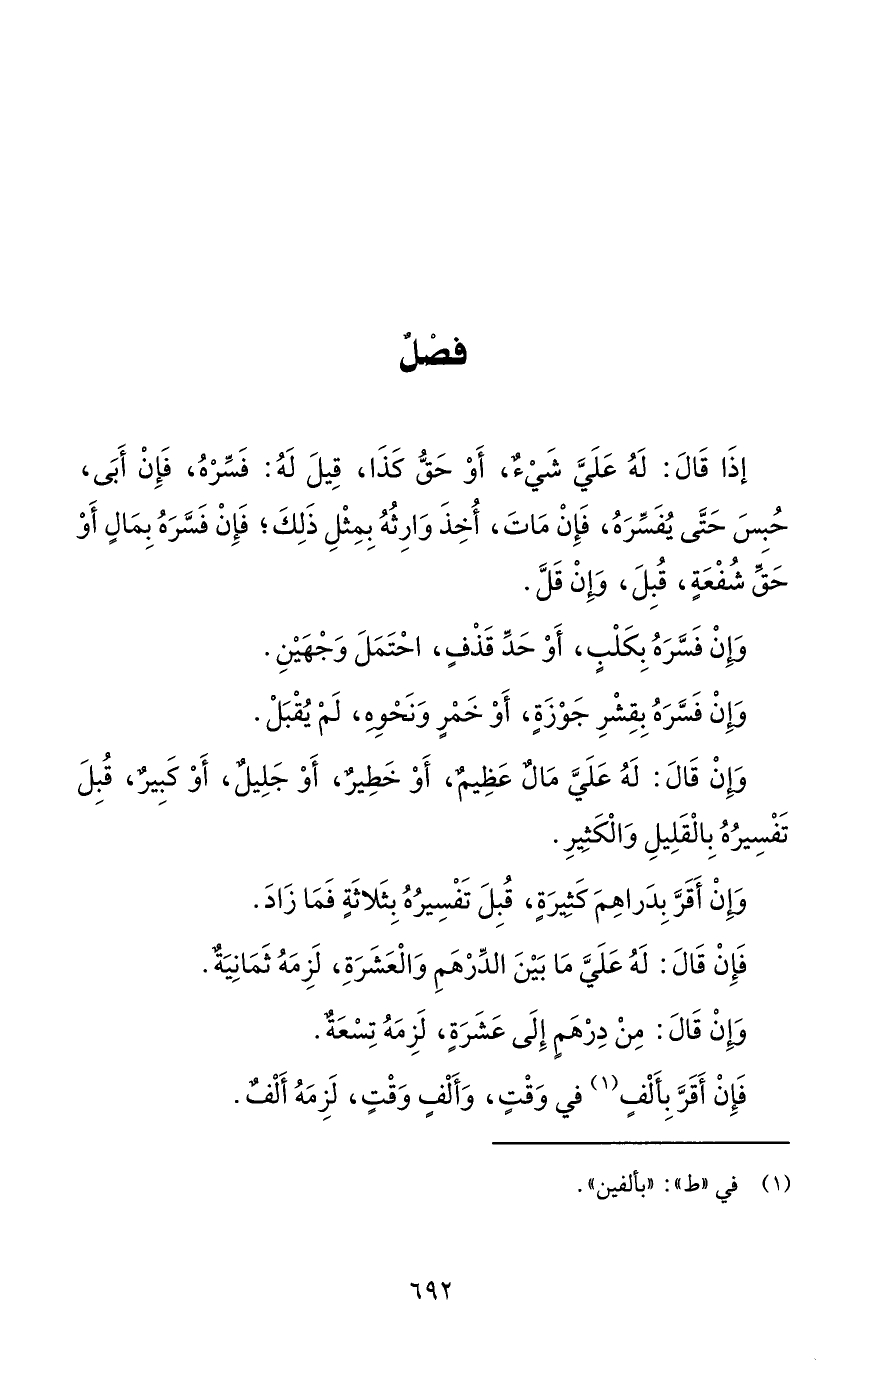 فصْلٌ
إذَا قَالَ: لَهُ عَلَيَّ شَيْءٌ، أَوْ حَقُّ كَذَا، قِيلَ لَهُ: فَسِّرْهُ، فَإِنْ أَبَى،
حُبِسَ حَتَّى يُفَسِّرَهُ، فَإِنْ مَاتَ، أُخِذَ وَارِثُهُ بِمِثْلِ ذَلِكَ؛ فَإِنْ فَسَّرَهُ بِمَالٍ أَوْ
حَقِّ شُفْعَةٍ، قُبِلَ، وَإِنْ قَلَّ.
وَإِنْ فَسَّرَهُ بِكَلْبٍ، أَوْ حَدِّ قَذْفٍ، احْتَمَلَ وَجْهَيْنِ.
وَإِنْ فَسَّرَهُ بِقِشْرِ جَوْزَةٍ، أَوْ خَمْرٍ وَنَحْوِهِ، لَمْ يُقْبَلْ.
وَإِنْ قَالَ: لَهُ عَلَيَّ مَالٌ عَظِيمٌ، أَوْ خَطِيرٌ، أَوْ جَلِيلٌ، أَوْ كَبِيرٌ، قُبِلَ
تَفْسِيرُهُ بِالْقَلِيلِ وَالْكَثِيرِ.
وَإِنْ أَقَرَّ بِدَراهِمَ كَثِيرَةٍ، قُبِلَ تَفْسِيرُهُ بِثَلاثَةٍ فَمَا زَادَ.
فَإِنْ قَالَ: لَهُ عَلَيَّ مَا بَيْنَ الدِّرْهَمِ وَالْعَشَرَةِ، لَزِمَهُ ثَمَانِيَةٌ.
وَإِنْ قَالَ: مِنْ دِرْهَمٍ إِلَى عَشَرَةٍ، لَزِمَهُ تِسْعَةٌ.
فَإِنْ أَقَرَّ بِأَلْفٍ(١) في وَقْتٍ، وَأَلْفٍ وَقْتٍ، لَزِمَهُ أَلْفٌ.
(١) في «ط»: «بألفين».
٦٩٢